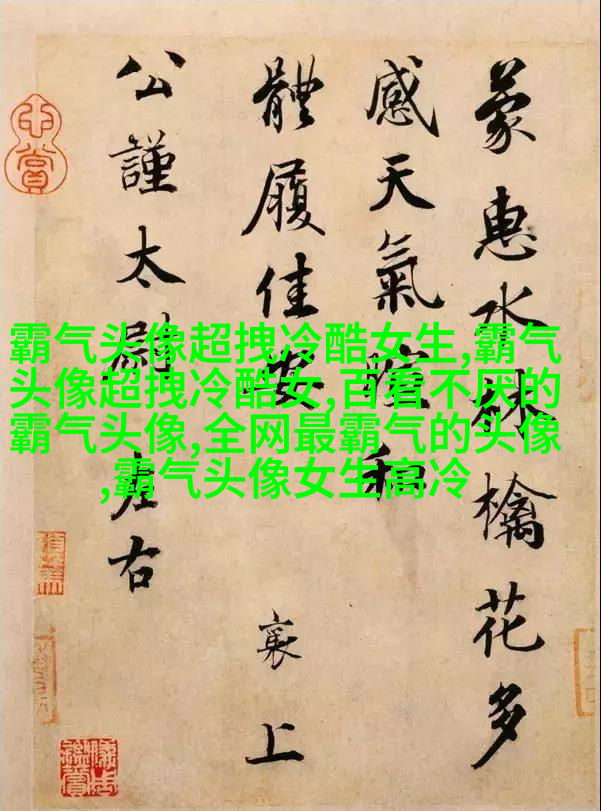 蒙惠水林檎花多
感天氣暄和
體履佳安
襄上
公謹太尉左右
霸气头像超拽冷酷女生,霸气
头像超拽冷酷女,百看不厌的
霸气头像,全网最霸气的头像
,霸气头像女生高冷